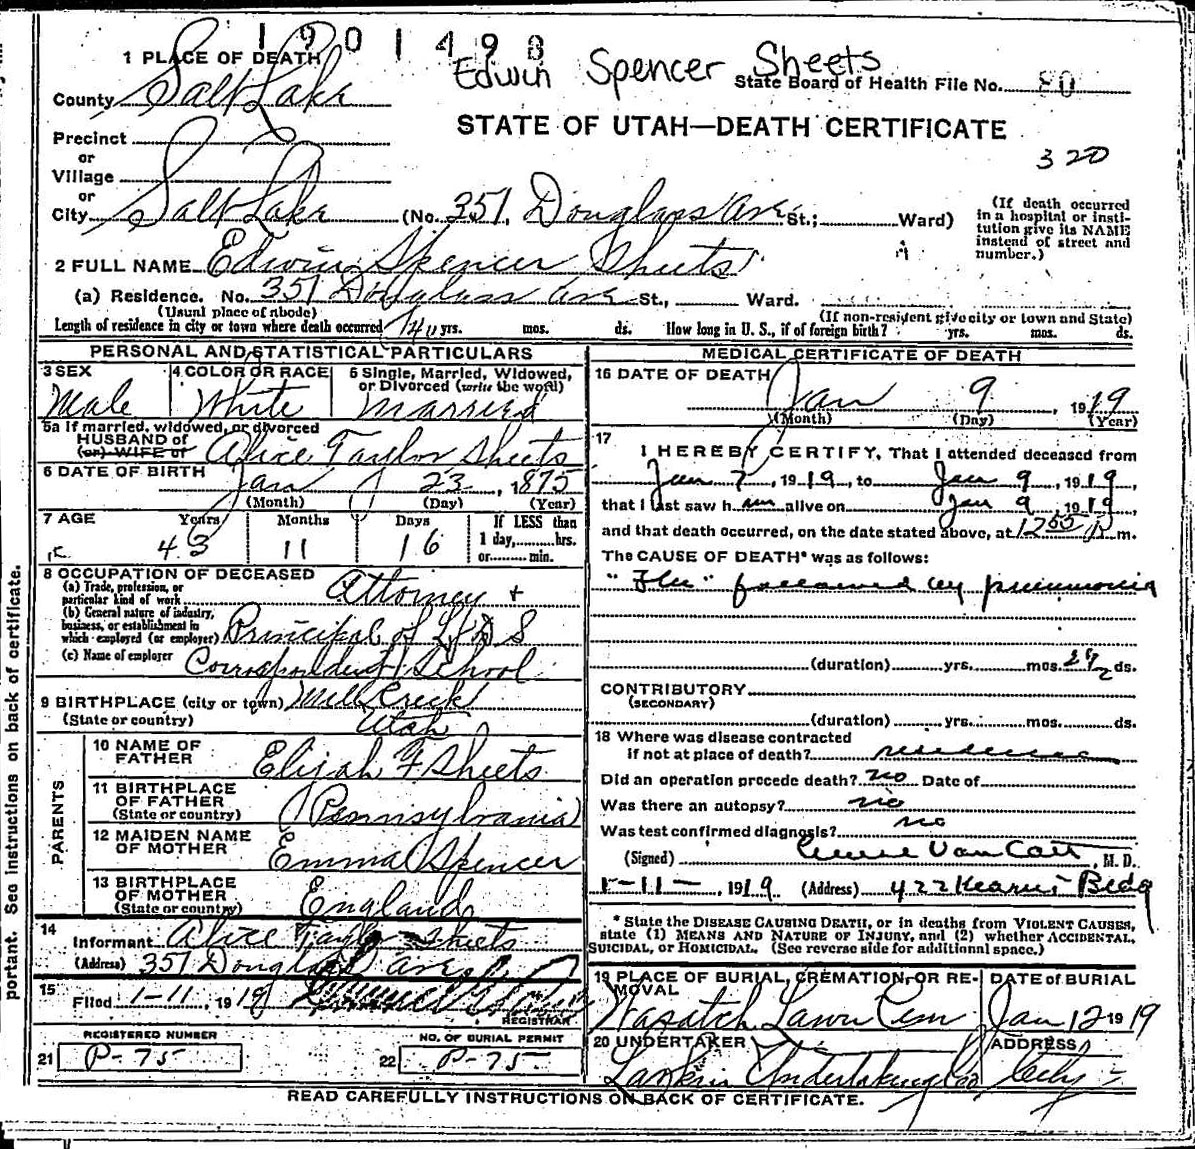 1901498
Edwin Spencer Sheets
1 PLACE OF DEATH
State Board of Health File No. 80
County Salt Lake
STATE OF UTAH—DEATH CERTIFICATE
320
Precinct
or
Village
or
City Salt Lake (No. 351, Douglass Ave St.; Ward)
(If death occurred in a hospital or institution give its NAME instead of street and number.)
2 FULL NAME Edwin Spencer Sheets
(a) Residence. No. 351 Douglass Ave St., Ward.
(Usual place of abode) (If non-resident give city or town and State)
Length of residence in city or town where death occurred yrs. mos. ds. How long in U. S., if of foreign birth? yrs. mos. ds.
PERSONAL AND STATISTICAL PARTICULARS
3 SEX 4 COLOR OR RACE 5 Single, Married, Widowed, or Divorced (write the word)
Male White Married
5a If married, widowed, or divorced
HUSBAND of
(or) WIFE of Alice Taylor Sheets
6 DATE OF BIRTH Jan 23, 1875
(Month) (Day) (Year)
7 AGE Years Months Days If LESS than
1 day, hrs.
43 11 16 or min.
8 OCCUPATION OF DECEASED
(a) Trade, profession, or
particular kind of work Attorney +
(b) General nature of industry,
business, or establishment in
which employed (or employer) Principal of L D S
(c) Name of employer Correspondent School
9 BIRTHPLACE (city or town) Mill Creek
(State or country) Utah
PARENTS
10 NAME OF
FATHER Elijah F Sheets
11 BIRTHPLACE
OF FATHER Pennsylvania
(State or country)
12 MAIDEN NAME
OF MOTHER Emma Spencer
13 BIRTHPLACE
OF MOTHER England
(State or country)
14
Informant Alice Taylor Sheets
(Address) 351 Douglass Ave
15
Filed 1-11, 1919
REGISTRAR
REGISTERED NUMBER NO. OF BURIAL PERMIT
21 P-75 22 P-75
MEDICAL CERTIFICATE OF DEATH
16 DATE OF DEATH
Jan 9, 1919
(Month) (Day) (Year)
17
I HEREBY CERTIFY, That I attended deceased from
Jan 7, 1919, to Jan 9, 1919,
that I last saw h im alive on Jan 9, 1919,
and that death occurred, on the date stated above, at 1255 P m.
The CAUSE OF DEATH* was as follows:
"Flu" followed by pneumonia
(duration) yrs. mos. ds.
CONTRIBUTORY
(SECONDARY)
(duration) yrs. mos. ds.
18 Where was disease contracted
if not at place of death? residence
Did an operation precede death? no Date of
Was there an autopsy? no
Was test confirmed diagnosis? no
(Signed) Van Cott, M. D.
1-11-, 1919 (Address) 422 Kearns Bldg
* State the DISEASE CAUSING DEATH, or in deaths from VIOLENT CAUSES,
state (1) MEANS AND NATURE OF INJURY, and (2) whether ACCIDENTAL,
SUICIDAL, or HOMICIDAL. (See reverse side for additional space.)
19 PLACE OF BURIAL, CREMATION, OR RE- DATE of BURIAL
MOVAL
Wasatch Lawn Cem Jan 12 1919
20 UNDERTAKER ADDRESS
Larkin Undertaking Co City
READ CAREFULLY INSTRUCTIONS ON BACK OF CERTIFICATE.
portant. See instructions on back of certificate.